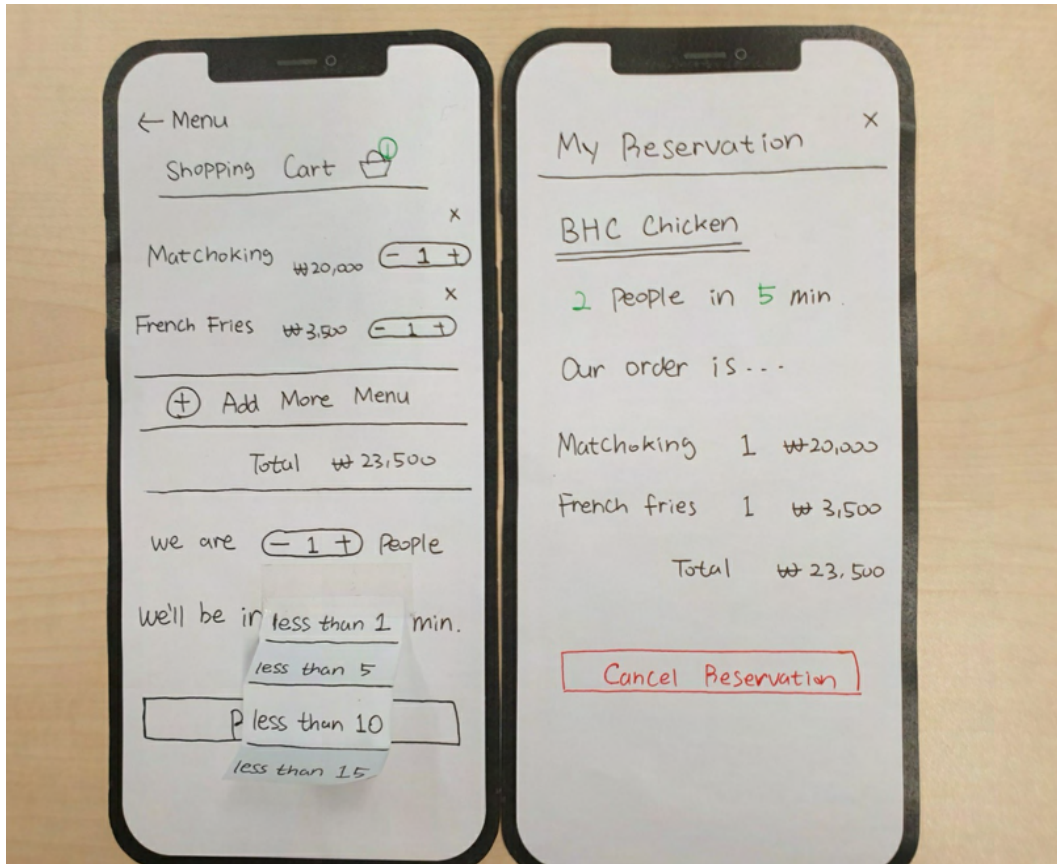 ← Menu
Shopping Cart 1
x
Matchoking ₩20,000 - 1 +
x
French Fries ₩3,500 - 1 +
+ Add More Menu
Total ₩23,500
we are - 1 + People
we'll be in less than 1 min.
less than 5
P less than 10
less than 15
My Reservation x
BHC Chicken
2 People in 5 min.
Our order is...
Matchoking 1 ₩20,000
French fries 1 ₩3,500
Total ₩23,500
Cancel Reservation